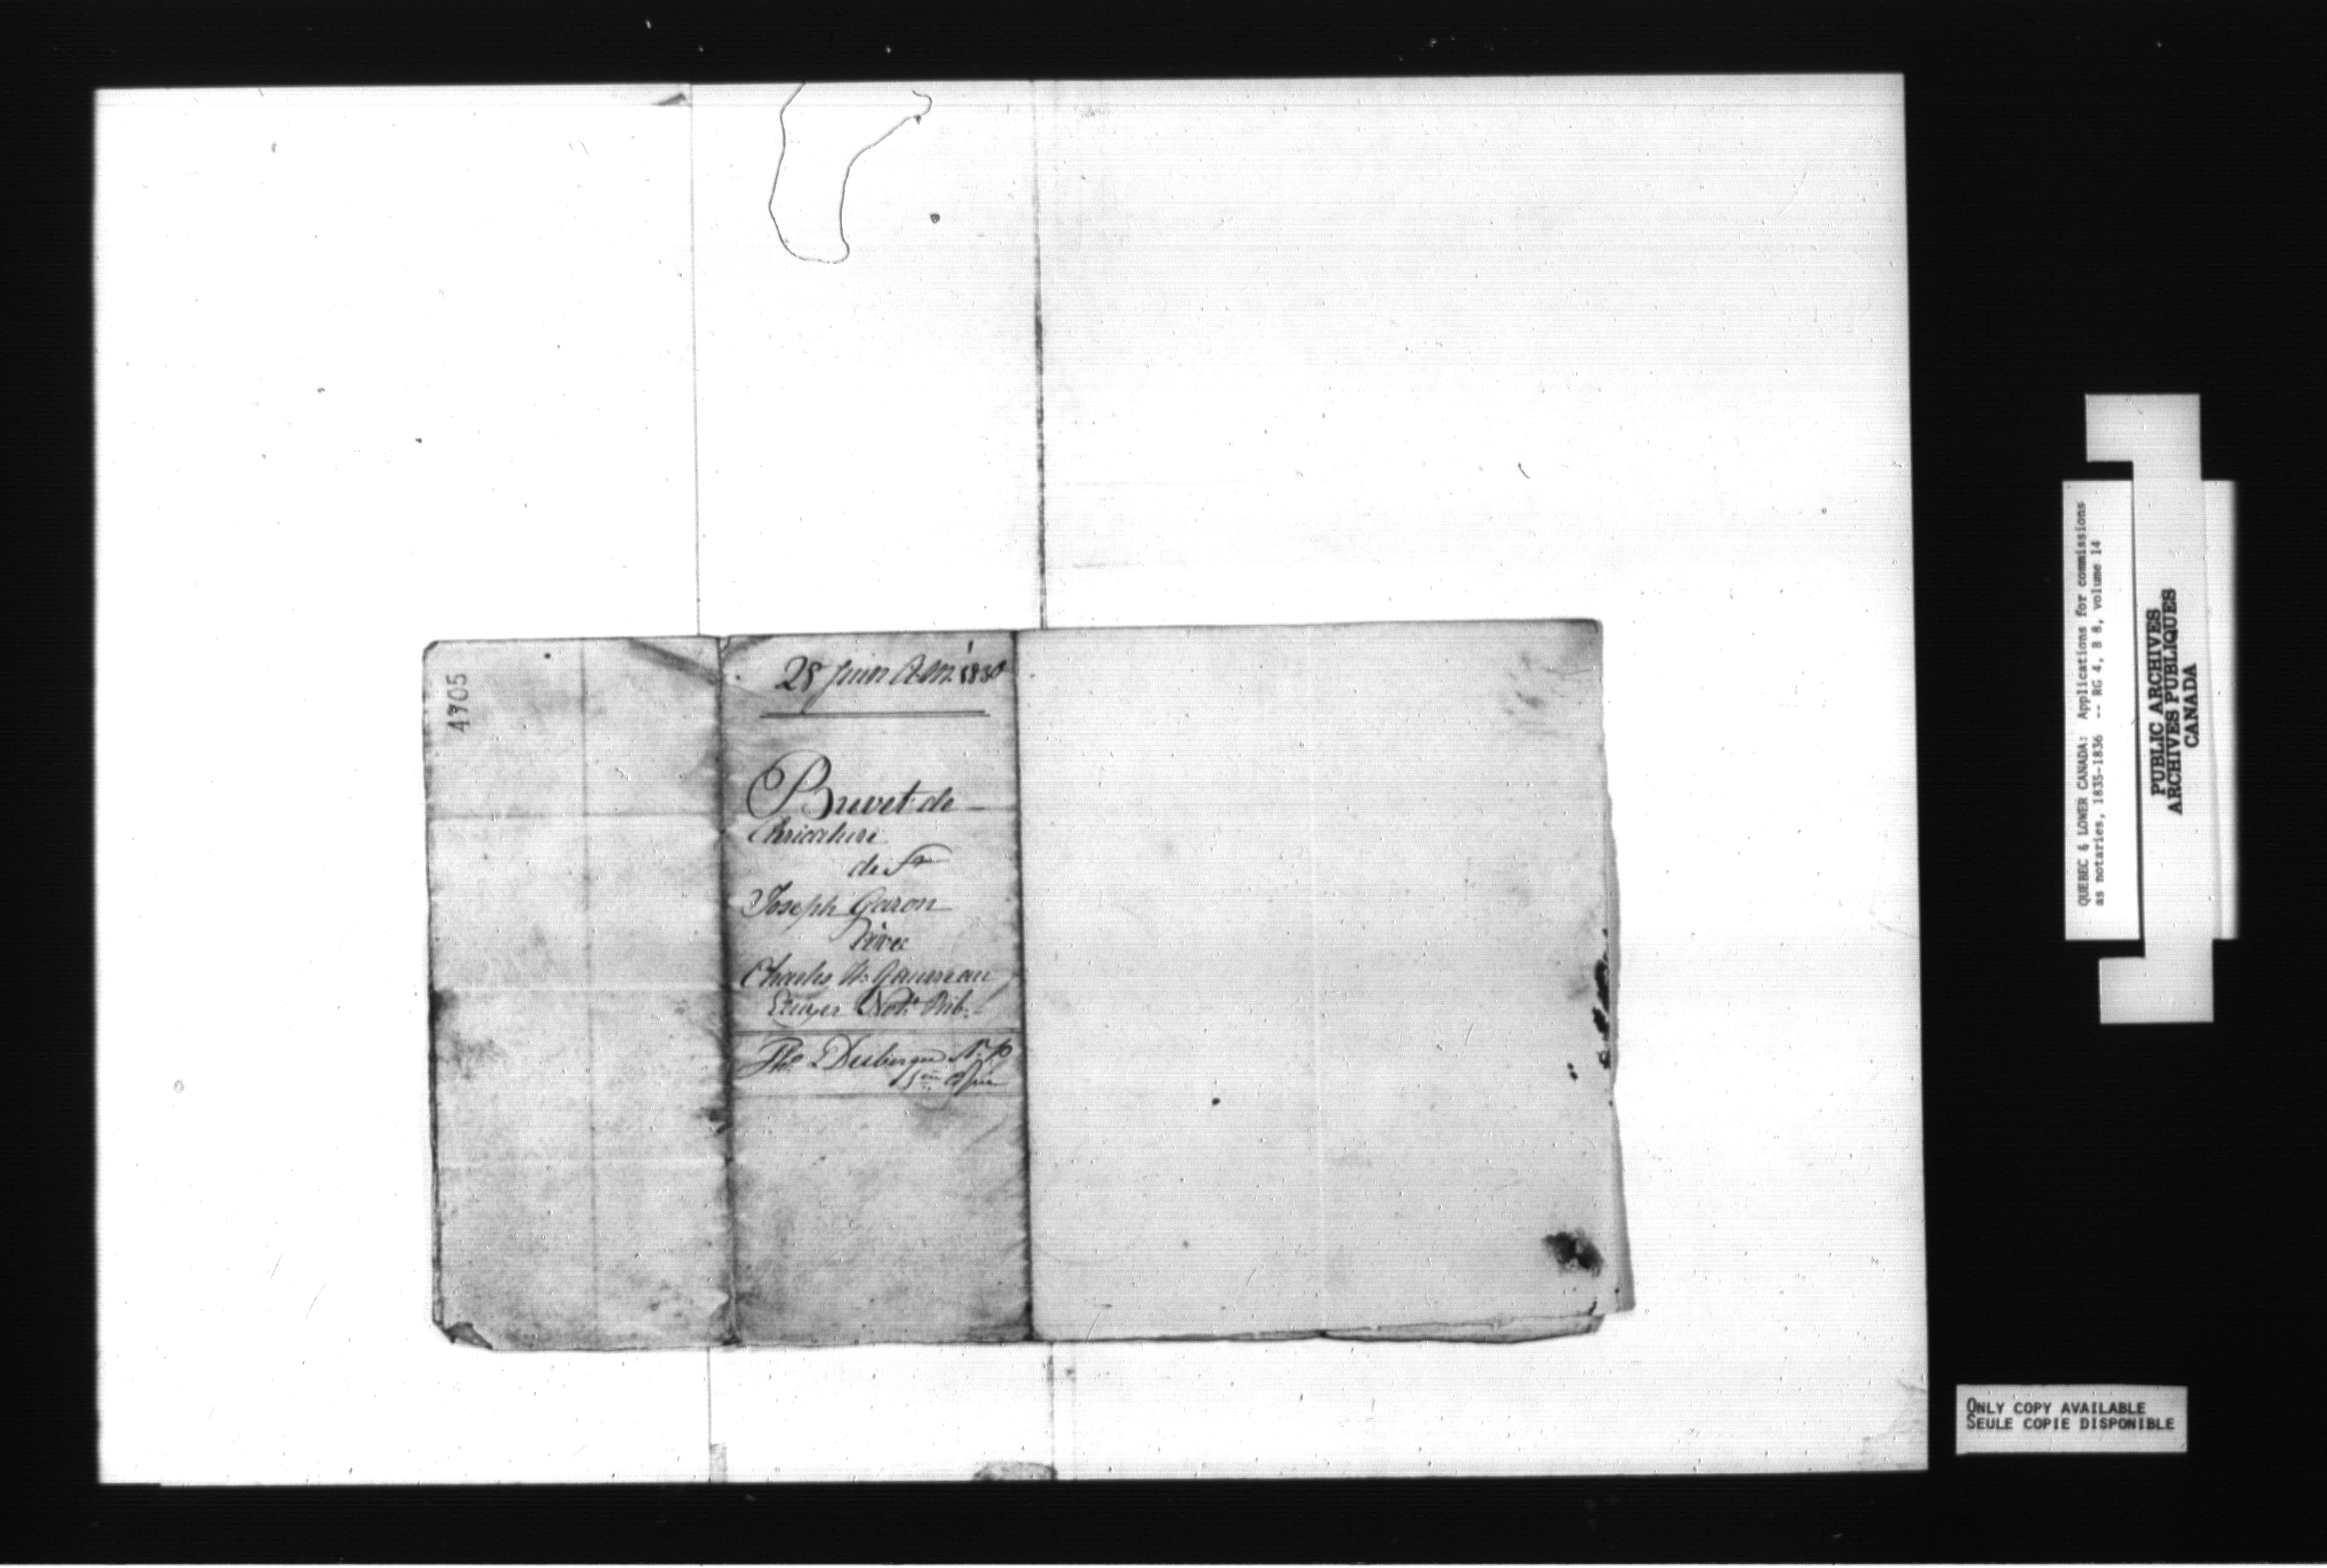 4705
28 Juin A.M. 1830
Brevet de
Cléricature
de Sr
Joseph Garon
avec
Charles H. Gauvreau
Ecuyer Not. Pub.
Ths L Deubergue N.P.
1ère Expée
QUEBEC & LOWER CANADA: Applications for commissions
as notaries, 1835-1836 -- RG 4, B 8, volume 14
PUBLIC ARCHIVES
ARCHIVES PUBLIQUES
CANADA
ONLY COPY AVAILABLE
SEULE COPIE DISPONIBLE